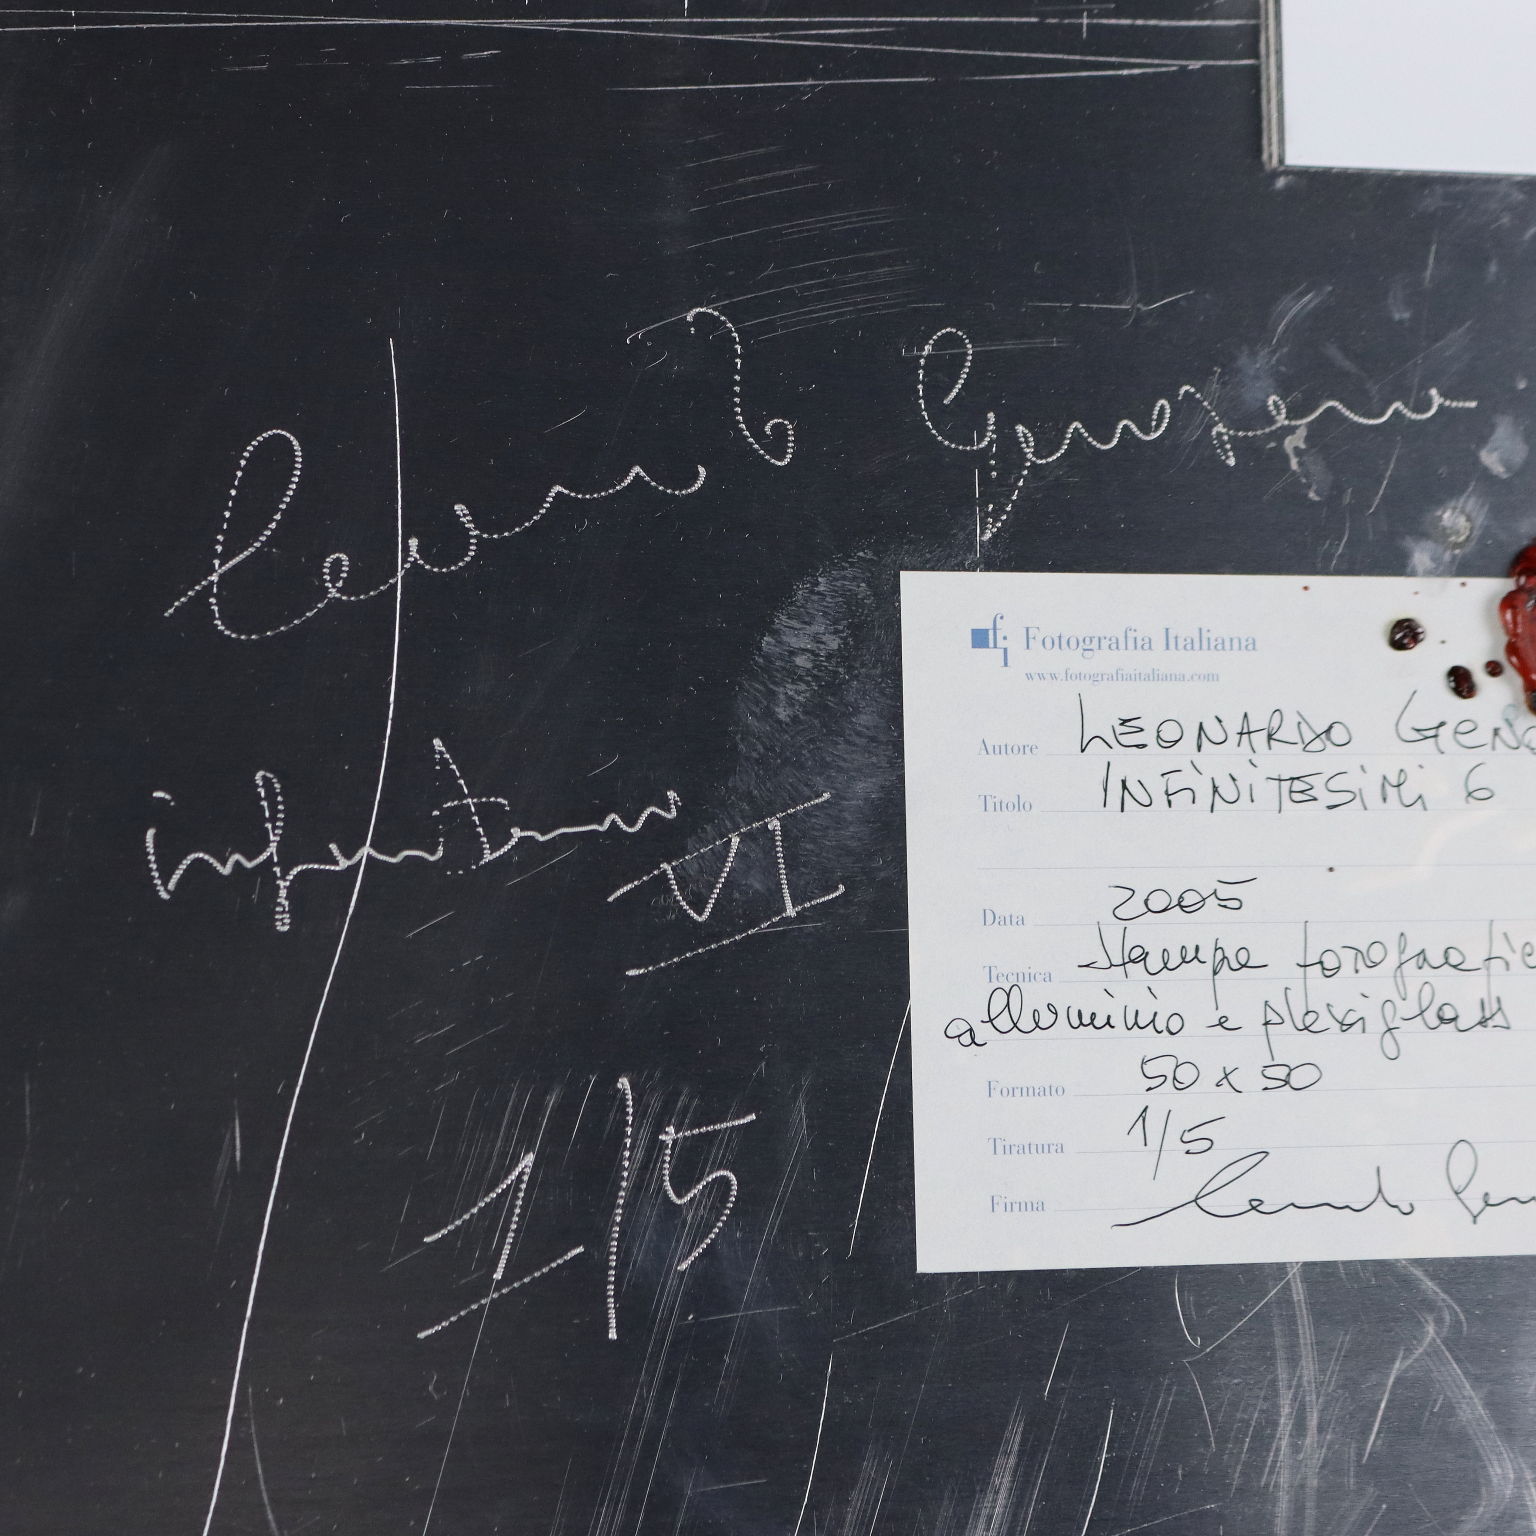 Leonardo Genovese
infinitesimi
VI
1/5
fi Fotografia Italiana
www.fotografiaitaliana.com
Autore LEONARDO GENO
Titolo INFINITESIMI 6
Data 2005
Tecnica Stampa fotografic
alluminio e plexiglass
Formato 50 x 50
Tiratura 1/5
Firma Leonardo Gen